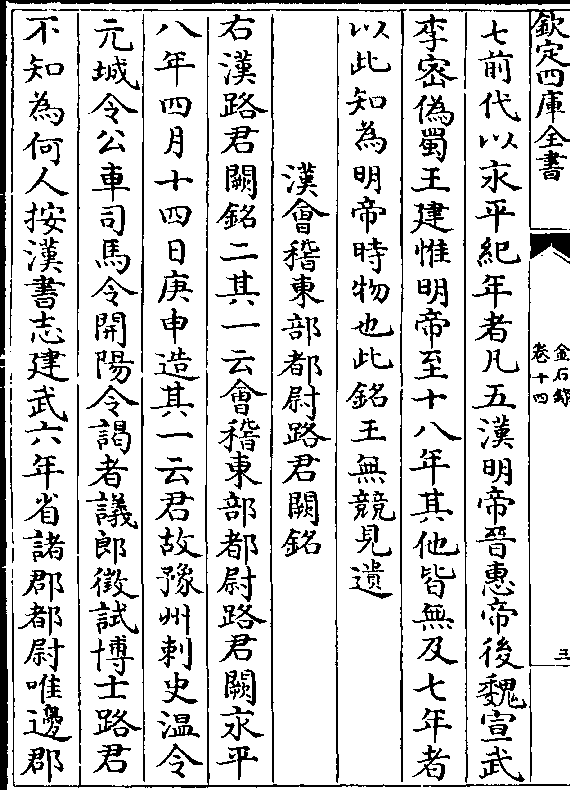 欽定四庫全書
金石錄
卷十四
五
七前代以永平紀年者凡五漢明帝晉惠帝後魏宣武
李密偽蜀王建惟明帝至十八年其他皆無及七年者
以此知為明帝時物也此銘王無競見遺
漢會稽東部都尉路君闕銘
右漢路君闕銘二其一云會稽東部都尉路君闕永平
八年四月十四日庚申造其一云君故豫州刺史溫令
元城令公車司馬令開陽令謁者議郎徵試博士路君
不知為何人按漢書志建武六年省諸郡都尉唯邊郡